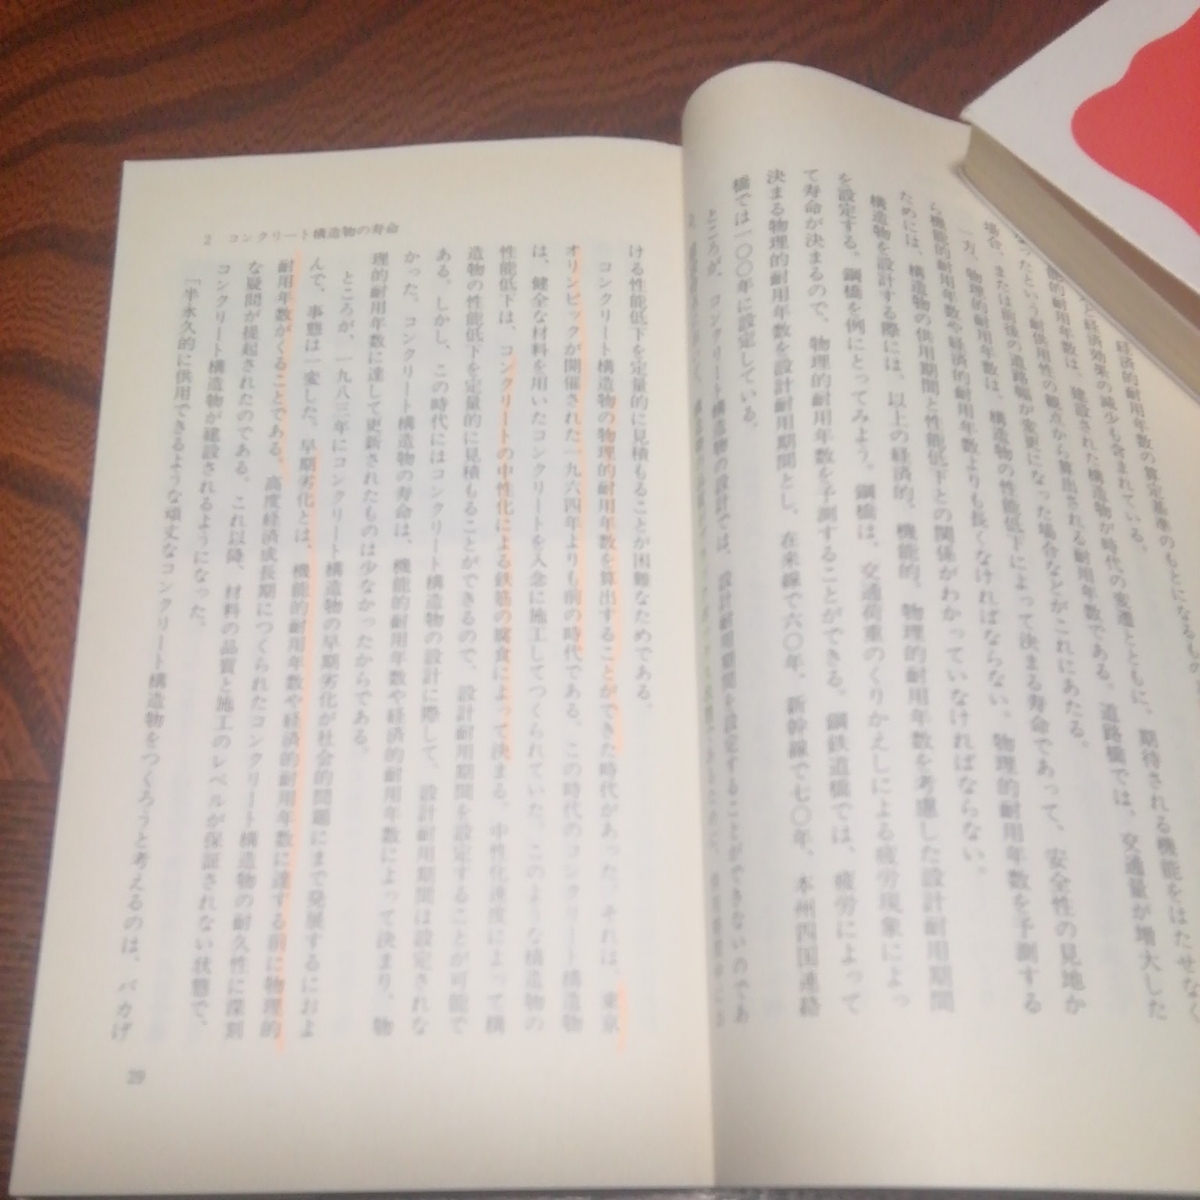 経済的耐用年数の算定基準のもとになるもの
と経済効果の減少も含まれている。
能的耐用年数は、建設された構造物が時代の変遷とともに、期待される機能をはたせなく
なったという耐供用性の観点から算出される耐用年数である。道路橋では、交通量が増大した
場合、または前後の道路幅が変更になった場合などがこれにあたる。
一方、物理的耐用年数は、構造物の性能低下によって決まる寿命であって、安全性の見地か
ら機能的耐用年数や経済的耐用年数よりも長くなければならない。物理的耐用年数を予測する
ためには、構造物の供用期間と性能低下との関係がわかっていなければならない。
構造物を設計する際には、以上の経済的、機能的、物理的耐用年数を考慮した設計耐用期間
を設定する。鋼橋を例にとってみよう。鋼橋は、交通荷重のくりかえしによる疲労現象によっ
て寿命が決まるので、物理的耐用年数を予測することができる。鋼鉄道橋では、疲労によって
決まる物理的耐用年数を設計耐用期間とし、在来線で六〇年、新幹線で七〇年、本州四国連絡
橋では一〇〇年に設定している。
ところが、コンクリート構造物の設計では、設計耐用期間を設定することができないのであ
ける性能低下を定量的に見積もることが困難なためである。
コンクリート構造物の物理的耐用年数を算出することができた時代があった。それは、東京
オリンピックが開催された一九六四年よりも前の時代である。この時代のコンクリート構造物
は、健全な材料を用いたコンクリートを入念に施工してつくられていた。このような構造物の
性能低下は、コンクリートの中性化による鉄筋の腐食によって決まる。中性化速度によって構
造物の性能低下を定量的に見積もることができるので、設計耐用期間を設定することが可能で
ある。しかし、この時代にはコンクリート構造物の設計に際して、設計耐用期間は設定されな
かった。コンクリート構造物の寿命は、機能的耐用年数や経済的耐用年数によって決まり、物
理的耐用年数に達して更新されたものは少なかったからである。
ところが、一九八三年にコンクリート構造物の早期劣化が社会的問題にまで発展するにおよ
んで、事態は一変した。早期劣化とは、機能的耐用年数や経済的耐用年数に達する前に物理的
耐用年数がくることである。高度経済成長期につくられたコンクリート構造物の耐久性に深刻
な疑問が提起されたのである。これ以降、材料の品質と施工のレベルが保証されない状態で、
コンクリート構造物が建設されるようになった。
「半永久的に供用できるような頑丈なコンクリート構造物をつくろうと考えるのは、バカげ
2 コンクリート構造物の寿命
29